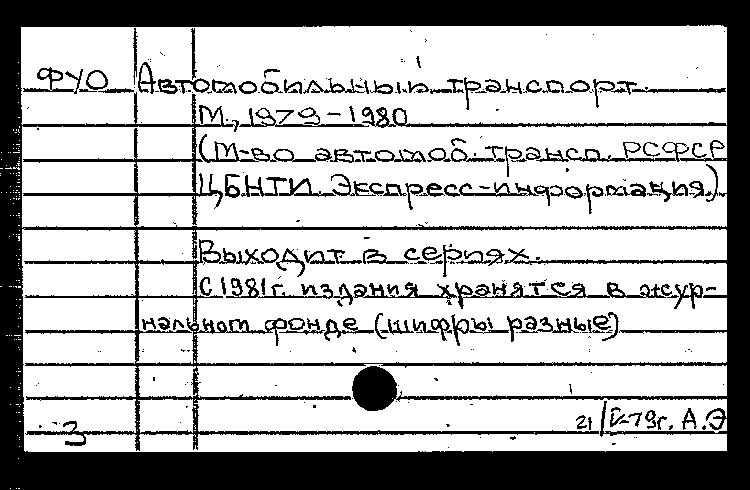 ФУО Автомобильный транспорт.
М., 1979-1980
(М-во автомоб. трансп. РСФСР
ЦБНТИ. Экспресс-информация.)
Выходит в сериях.
С 1981г. издания хранятся в жур-
нальном фонде (шифры разные)
21/V-79г. А.Э
3